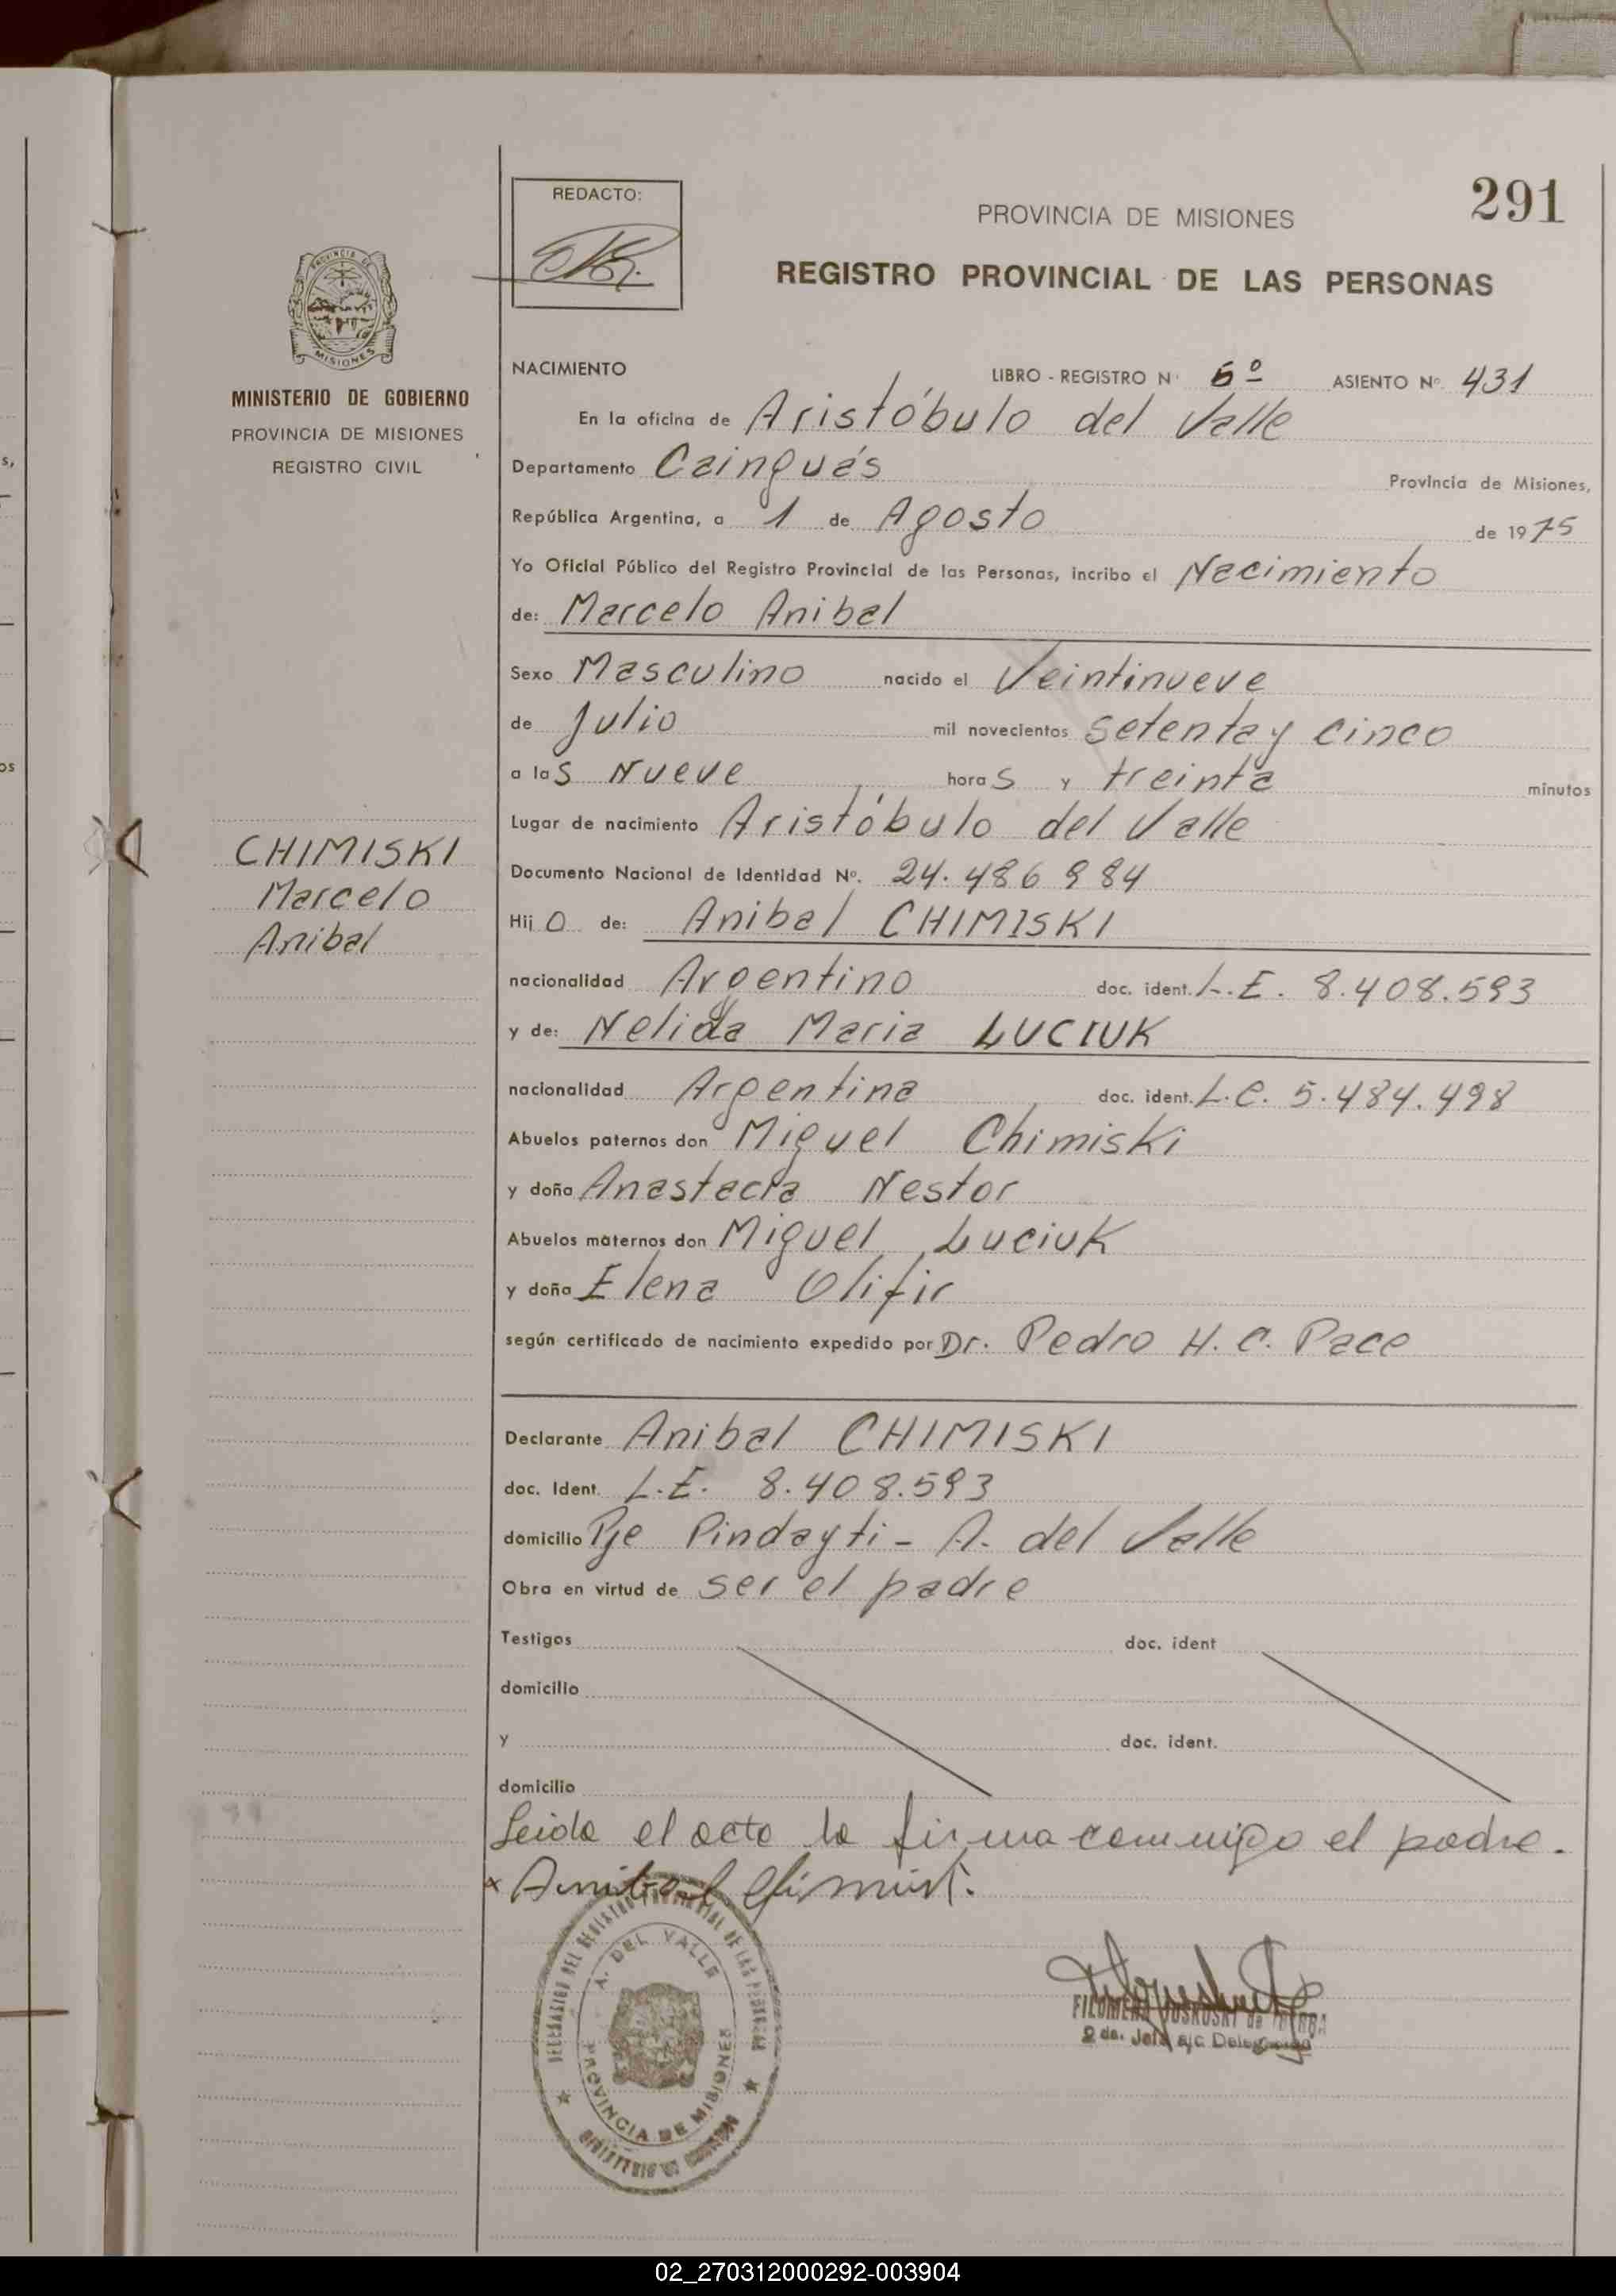 291
REDACTO:
PROVINCIA DE MISIONES
REGISTRO PROVINCIAL DE LAS PERSONAS
MISIONES
MINISTERIO DE GOBIERNO
PROVINCIA DE MISIONES
REGISTRO CIVIL
NACIMIENTO LIBRO - REGISTRO Nº 6º ASIENTO Nº 431
En la oficina de Aristóbulo del Valle
Departamento Cainguás Provincia de Misiones,
República Argentina, a 1 de Agosto de 1975
Yo Oficial Público del Registro Provincial de las Personas, incribo el Nacimiento
de: Marcelo Anibal
Sexo Masculino nacido el Veintinueve
de Julio mil novecientos setenta y cinco
a las Nueve horas y treinta minutos
Lugar de nacimiento Aristóbulo del Valle
CHIMISKI
Marcelo
Anibal
Documento Nacional de Identidad Nº. 24.486 984
Hijo de: Anibal CHIMISKI
nacionalidad Argentino doc. ident. L.E. 8.408.593
y de: Nelida Maria LUCIUK
nacionalidad Argentina doc. ident. L.C. 5.484.498
Abuelos paternos don Miguel Chimiski
y doña Anastacia Nestor
Abuelos maternos don Miguel Luciuk
y doña Elena Olifir
según certificado de nacimiento expedido por Dr. Pedro H. C. Pace
Declarante Anibal CHIMISKI
doc. Ident. L.E. 8.408.593
domicilio Pje Pindayti - A. del Valle
Obra en virtud de ser el padre
Testigos doc. ident
domicilio
y doc. ident.
domicilio
Leida el acta la firma conmigo el padre.
x Anibal Chimiski
DELEGACION DEL REGISTRO PROVINCIAL DE LAS PERSONAS
A. DEL VALLE
PROVINCIA DE MISIONES
FILOMENA de
2 da. Jefe a/c Delegación
02_270312000292-003904